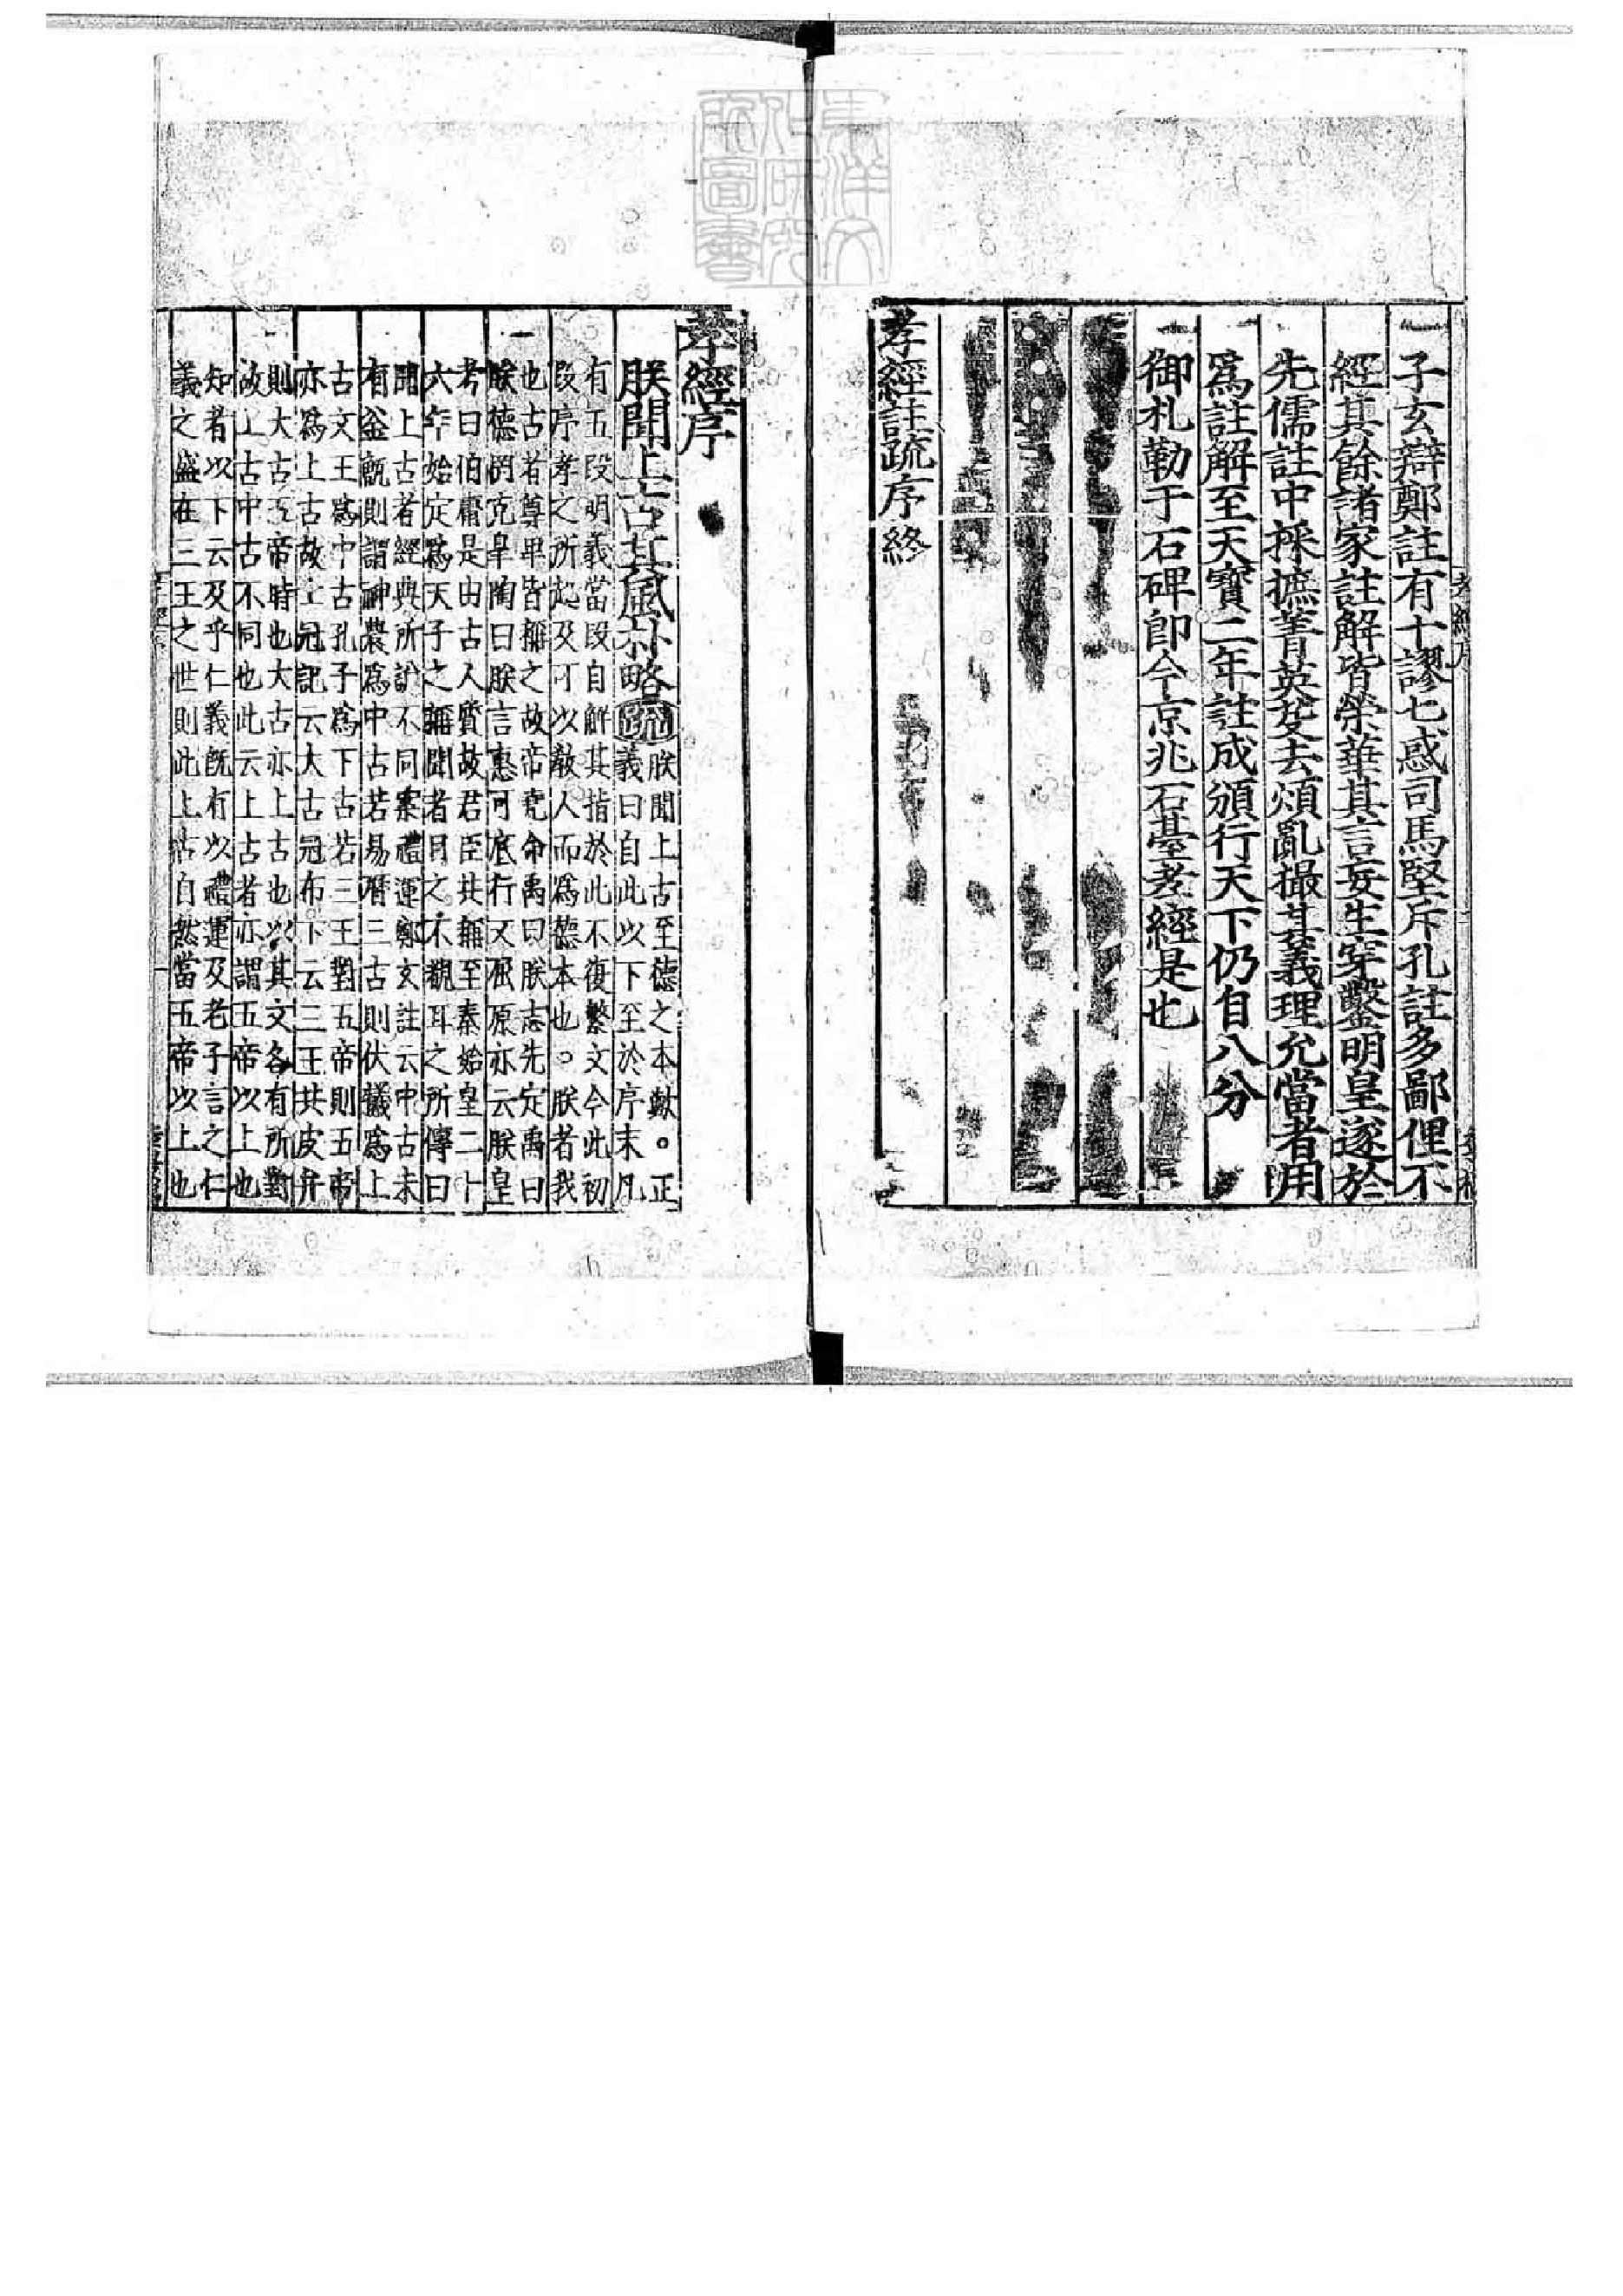 子玄辯鄭註有十謬七惑司馬堅斥孔註多鄙俚不
經其餘諸家註解皆榮華其言妄生穿鑿明皇遂於
先儒註中採摭菁英芟去煩亂撮其義理允當者用
爲註解至天寶二年註成頒行天下仍自八分
御札勒于石碑即今京兆石臺孝經是也
孝經註疏序終
孝經序
朕聞上古其風朴略
疏
朕聞上古至德之本歟。正
義曰自此以下至於序末凡
有五段明義當段自解其指於此不復繁文今此初
段序孝之所起及可以教人而爲德本也。朕者我
也古者尊卑皆稱之故帝堯命禹曰朕志先定禹曰
朕德罔克皐陶曰朕言惠可底行又屈原亦云朕皇
考曰伯庸是由古人質故君臣共稱至秦始皇二十
六年始定爲天子之稱聞者目之不覩耳之所傳曰
聞上古者經典所說不同案禮運鄭玄註云中古未
有釜甑則謂神農爲中古若易曆三古則伏犧爲上
古文王爲中古孔子爲下古若三王對五帝則五帝
亦爲上古故士冠記云大古冠布下云三王共皮弁
則大古五帝時也大古亦上古也以其文各有所對
故上古中古不同也此云上古者亦謂五帝以上也
知者以下云及乎仁義既有以禮運及老子言之仁
義之盛在三王之世則此上古自然當五帝以上也